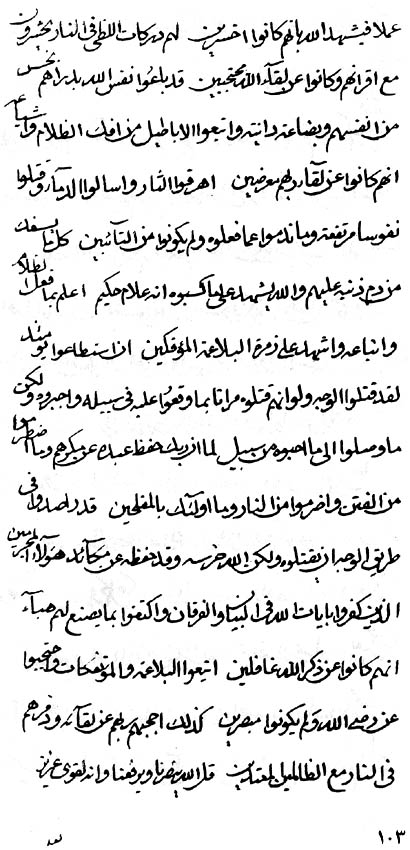 عملا فيشهد الله بانهم كانوا اخسرين لهم دركات اللظى فى النار يحشرون
مع اقرانهم وكانوا عن لقآء الله محتجبين قد باعوا نفس الله بدراهم بخس
من انفسهم وبضاعة دانية واتبعوا الاباطيل من افك الظلام
انهم كانوا عن لقآء ربهم معرضين اهرقوا الثار واسالوا الدمآء وقتلوا
نفوسا مرتفعة وما ندموا عما فعلوه ولم يكونوا من التآئبين كل ما يسفك
من دم ذنبه عليهم والله يشهد على ما كسبوه انه علام حكيم اعلم بما فعل
واتباعه واشهد على زمرة البلاعة المؤفكين ان استطاعوا يومئذ
لقد قتلوا الوجه ولو انهم قتلوه مرانا بما وقعوا عليه فى سبيله واجبروه ولكن
ما وصلوا الى ما احبوه من سبيل لما اراد ربك حفظ عبده عن مكرهم وما اضطروا
من الفتن واضرموا من النار وما اولئك بالمفلحين قد رصدوا فى
طريق الوجه ان يقتلوه ولكن الله حرسه وقد حفظه عن مكآئد هؤلآء المجرمين
الذين كفروا بايات الله فى الكتاب والفرقان واكتفوا بما يصنع لهم هبآء
انهم كانوا عن ذكر الله غافلين اتبعوا البلاعة والمؤتفكات واحتجبوا
عن وجه الله ولم يكونوا مبصرين كذلك احجبهم ربهم عن لقآئه وذرهم
فى النار مع الظالمين المعتدين قل الله ينصرنا ويرفعنا وانه لقوى عزيز
١٠٣